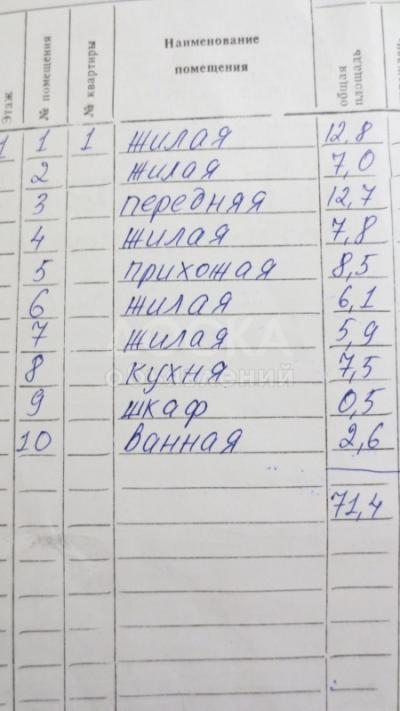 Этаж № помещения № квартиры Наименование помещения общая площадь
1 1 1 жилая 12,8
2 жилая 7,0
3 передняя 12,7
4 жилая 7,8
5 прихожая 8,5
6 жилая 6,1
7 жилая 5,9
8 кухня 7,5
9 шкаф 0,5
10 ванная 2,6
71,4
ДОСКА
ОБЪЯВЛЕНИЙ